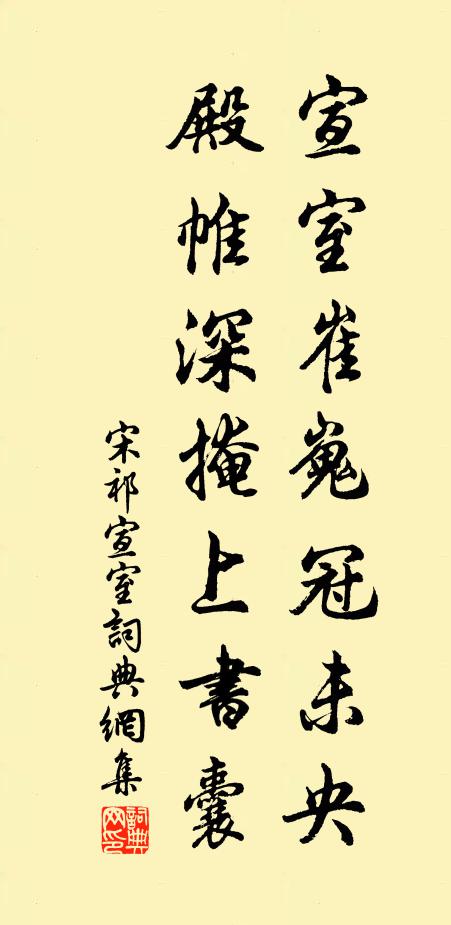 宣室崔嵬冠未央
殿帷深掩上書囊
宋祁宣室詞典網集
詞典網印